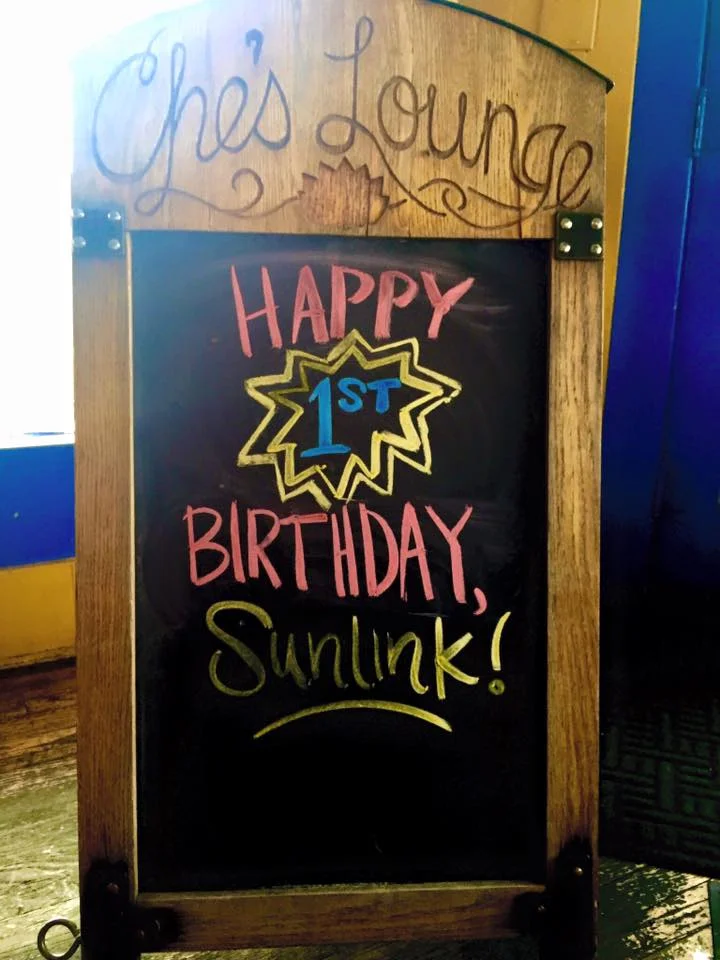 Che's Lounge
HAPPY
1ST
BIRTHDAY,
Sunlink!